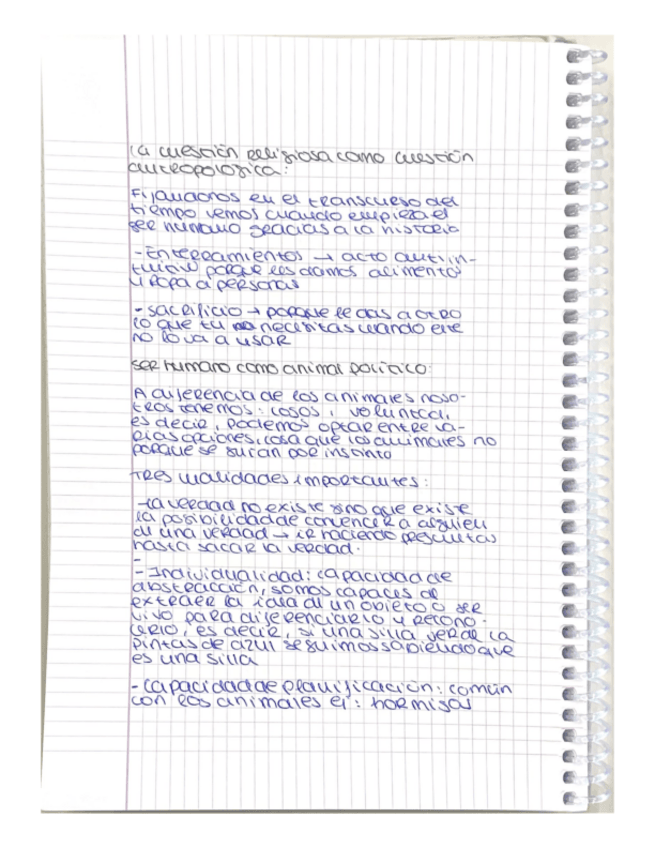 La cuestión religiosa como cuestión
antropologica:
Fijandonos en el transcurso del
tiempo vemos cuando empieza el
ser humano gracias a la historia
- Enterramientos → acto antiin-
tuitivo porque les damos alimento
y ropa a personas
- sacrificio → porque le das a otro
lo que tu necesitas cuando este
no lo va a usar
ser humano como animal político:
A diferencia de los animales noso-
tros tenemos: logos, voluntad,
es decir, podemos optar entre va-
rias opciones, cosa que los animales no
porque se guian por instinto
Tres cualidades importantes:
- La verdad no existe sino que existe
la posibilidad de convencer a alguien
de una verdad → ir haciendo preguntas
hasta sacar la verdad.
-
- Individualidad: capacidad de
abstracción, somos capaces de
extraer la idea de un objeto o ser
vivo para diferenciarlo y recono-
cerlo, es decir, si una silla verde la
pintas de azul seguimos sabiendo que
es una silla
- Capacidad de planificación: común
con los animales ej: hormigas